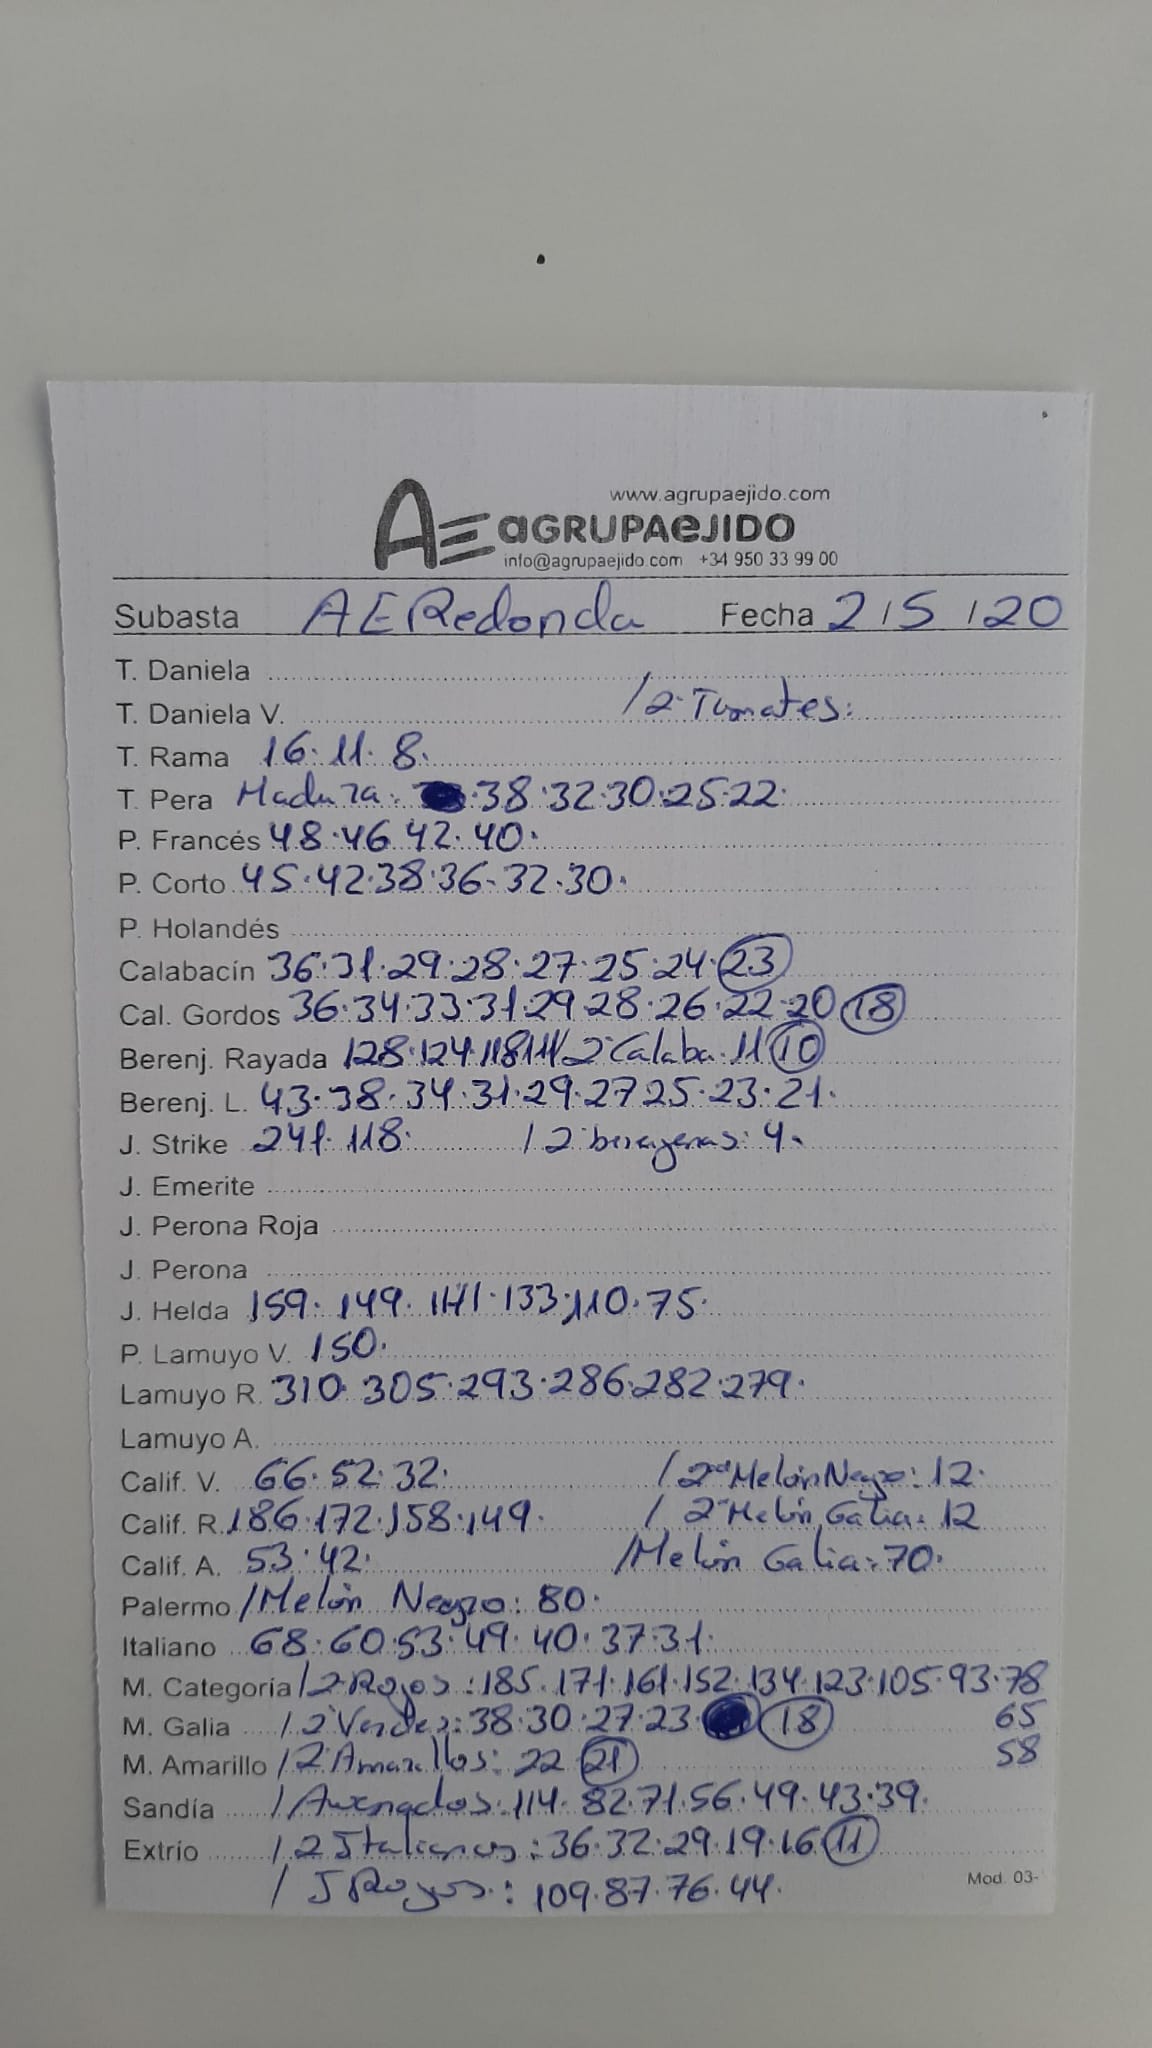 www.agrupaejido.com
AE aGRUPAeJIDO
info@agrupaejido.com +34 950 33 99 00
Subasta AE Redonda Fecha 2/5/20
T. Daniela
T. Daniela V. /2ª Tomates:
T. Rama 16.11.8.
T. Pera Madura: .38.32.30.25.22.
P. Francés 48.46.42.40.
P. Corto 45.42.38.36.32.30.
P. Holandés
Calabacín 36.31.29.28.27.25.24.23
Cal. Gordos 36.34.33.31.29.28.26.22.20 18
Berenj. Rayada 128.124.118.111/2ª Calaba.11 10
Berenj. L. 43.38.34.31.29.27.25.23.21.
J. Strike 241.118. /2ª berenjenas: 4.
J. Emerite
J. Perona Roja
J. Perona
J. Helda 159.149.141.133.110.75.
P. Lamuyo V. 150.
Lamuyo R. 310.305.293.286.282.279.
Lamuyo A.
Calif. V. 66.52.32. /2ª Melón Negro: 12.
Calif. R. 186.172.158.149. /2ª Melón Galia: 12
Calif. A. 53.42. /Melón Galia: 70.
Palermo /Melón Negro: 80.
Italiano 68.60.53.49.40.37.31.
M. Categoría /2ª Rojos: 185.171.161.152.134.123.105.93.78
M. Galia /2ª Verdes: 38.30.27.23. 18 65
M. Amarillo /2ª Amarillos: 22 21 58
Sandía /Asurados: 114.82.71.56.49.43.39.
Extrío /2 Italianos: 36.32.29.19.16 11
/J Rojos: 109.87.76.44.
Mod. 03-